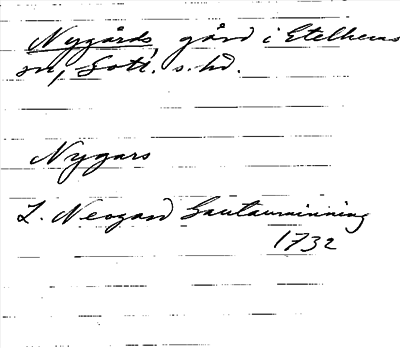 Nygårds, gård i Etelhems
sn, Gotl. s. hd.
Nygars
L. Neogard Gautauminning
1732